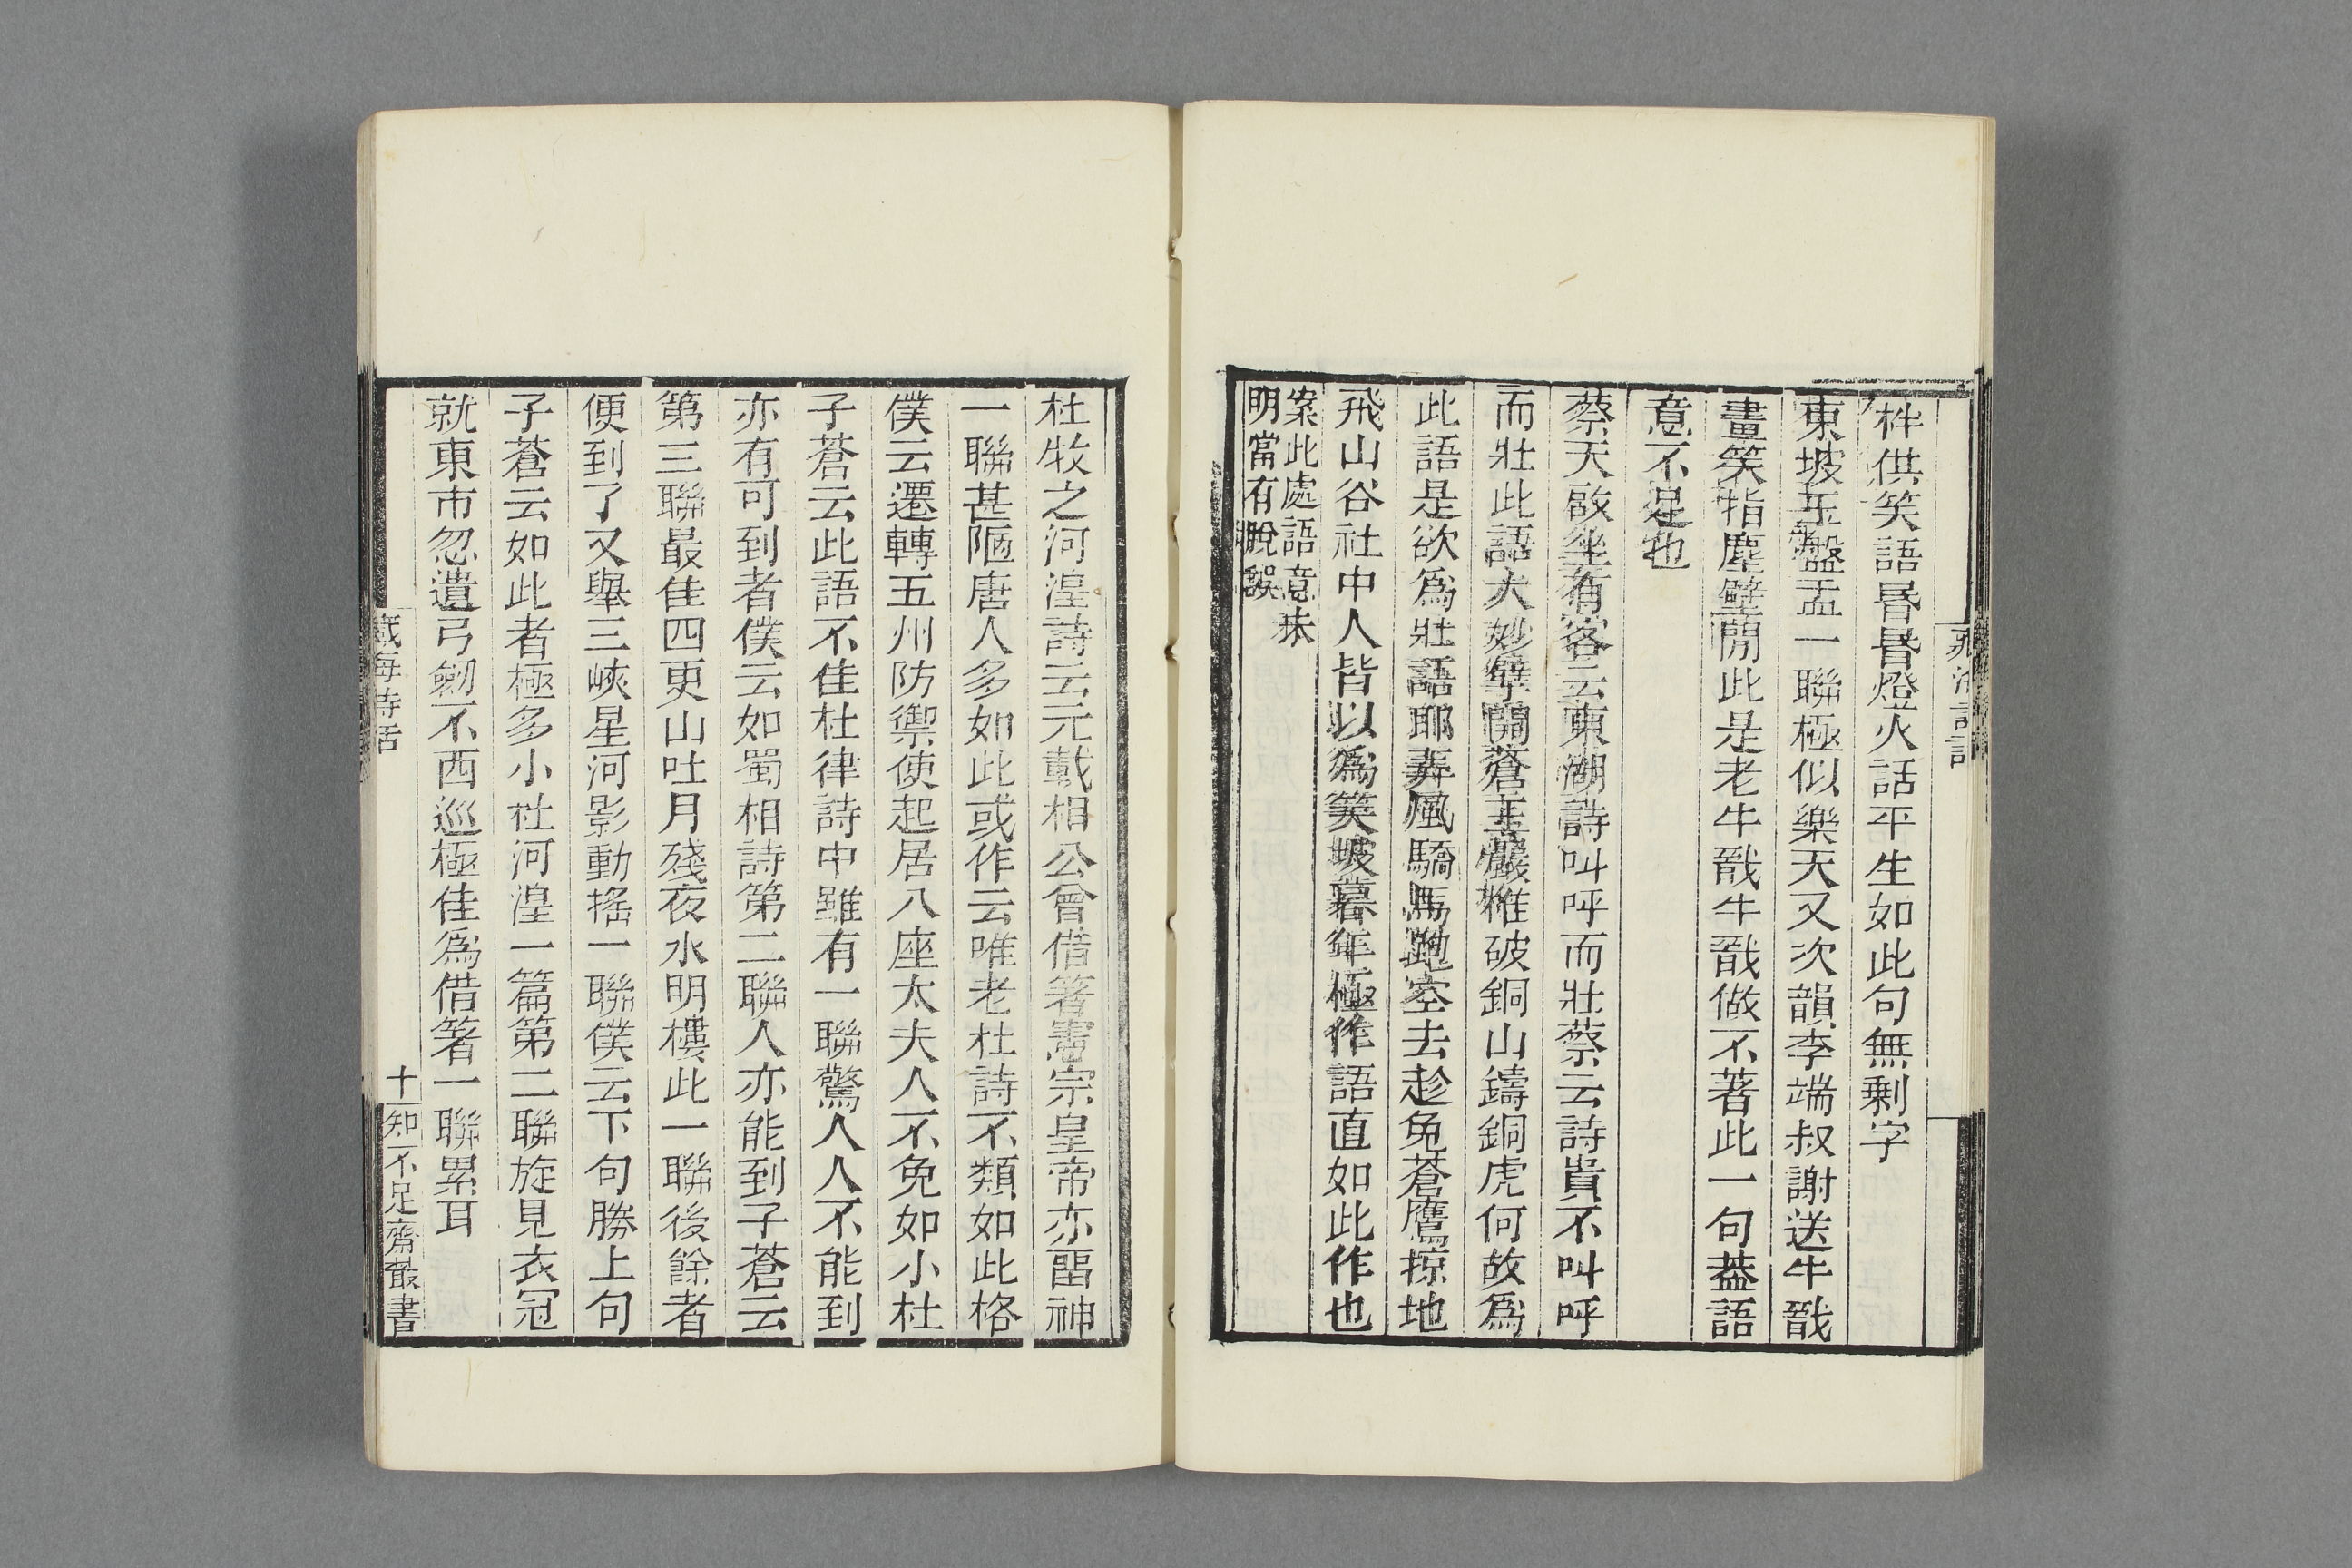 柈供笑語昬昬燈火話平生如此句無剩字
東坡玉盤盂一聯極似樂天又次韻李端叔謝送牛戩
畫笑指塵壁閒此是老牛戩牛戩做不著此一句葢語
意不足也
蔡天啟坐有客云東湖詩叫呼而壯蔡云詩貴不叫呼
而壯此語大妙擘開蒼玉巖椎破銅山鑄銅虎何故爲
此語是欲爲壯語耶弄風驕馬跑空去趁兔蒼鷹掠地
飛山谷社中人皆以爲笑坡暮年極作語直如此作也
案此處語意未
明當有脫誤
杜牧之河湟詩云元載相公曾借箸憲宗皇帝亦畱神
一聯甚陋唐人多如此或作云唯老杜詩不類如此格
僕云遷轉五州防禦使起居八座太夫人不免如小杜
子蒼云此語不佳杜律詩中雖有一聯驚人人不能到
亦有可到者僕云如蜀相詩第二聯人亦能到子蒼云
第三聯最佳四更山吐月殘夜水明樓此一聯後餘者
便到了又舉三峽星河影動搖一聯僕云下句勝上句
子蒼云如此者極多小杜河湟一篇第二聯旋見衣冠
就東市忽遺弓劒不西巡極佳爲借箸一聯累耳
藏海詩話
十
知不足齋叢書